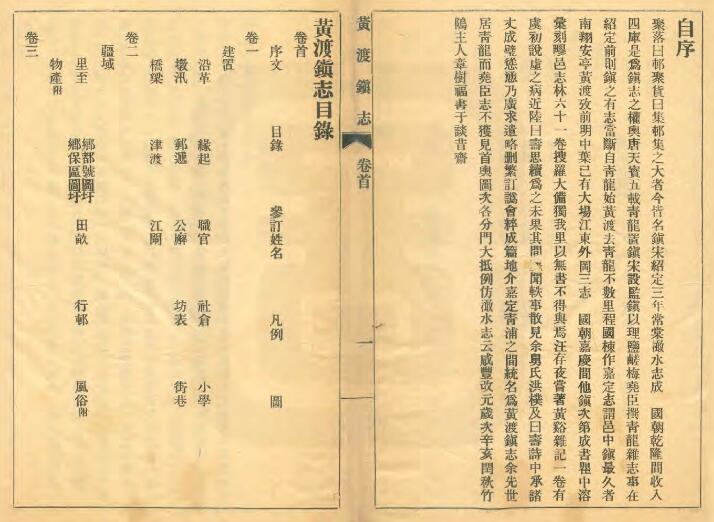 自序
聚落曰邨聚貨曰集邨集之大者今皆名鎮宋紹定三年常棠澉水志成　國朝乾隆間收入
四庫是爲鎮志之權輿唐天寶五載青龍置鎮宋設監鎮以理鹽鹺梅堯臣撰青龍雜志事在
紹定前則鎮之有志當斷自青龍始黃渡去青龍不數里程國棟作嘉定志謂邑中鎮最久者
南翔安亭黃渡攷前明中葉已有大場江東外岡三志　國朝嘉慶間他鎮次第成書瞿中溶
彙刻疁邑志林六十一卷搜羅大備獨我里以無書不得與焉汪存夜嘗著黃谿雜記一卷有
虞初說虛之病近陸曰壽思續爲之未果其間聞軼事散見余舅氏洪樸及曰壽詩中承諸
丈成壁慫慂乃廣求遺略刪繁訂譌會粹成篇地介嘉定青浦之間統名爲黃渡鎮志余先世
居青龍而堯臣志不獲見首輿圖次各分門大抵例仿澉水志云咸豐改元歲次辛亥閏秋竹
隝主人章樹福書于談昔齋
黃渡鎮志　卷首　一
黃渡鎮志目錄
卷首
序文　目錄　參訂姓名　凡例　圖
卷一
建置
沿革　緣起　職官　社倉　小學
墩汛　郵遞　公廨　坊表　街巷
橋梁　津渡　江閘
卷二
疆域
里至　鄉都號圖圩　鄉保區圖圩　田畝　行邨　風俗附
物產附
卷三